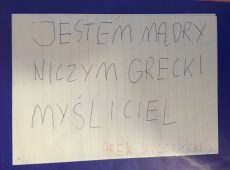 JESTEM MĄDRY
NICZYM GRECKI
MYŚLICIEL
AREK